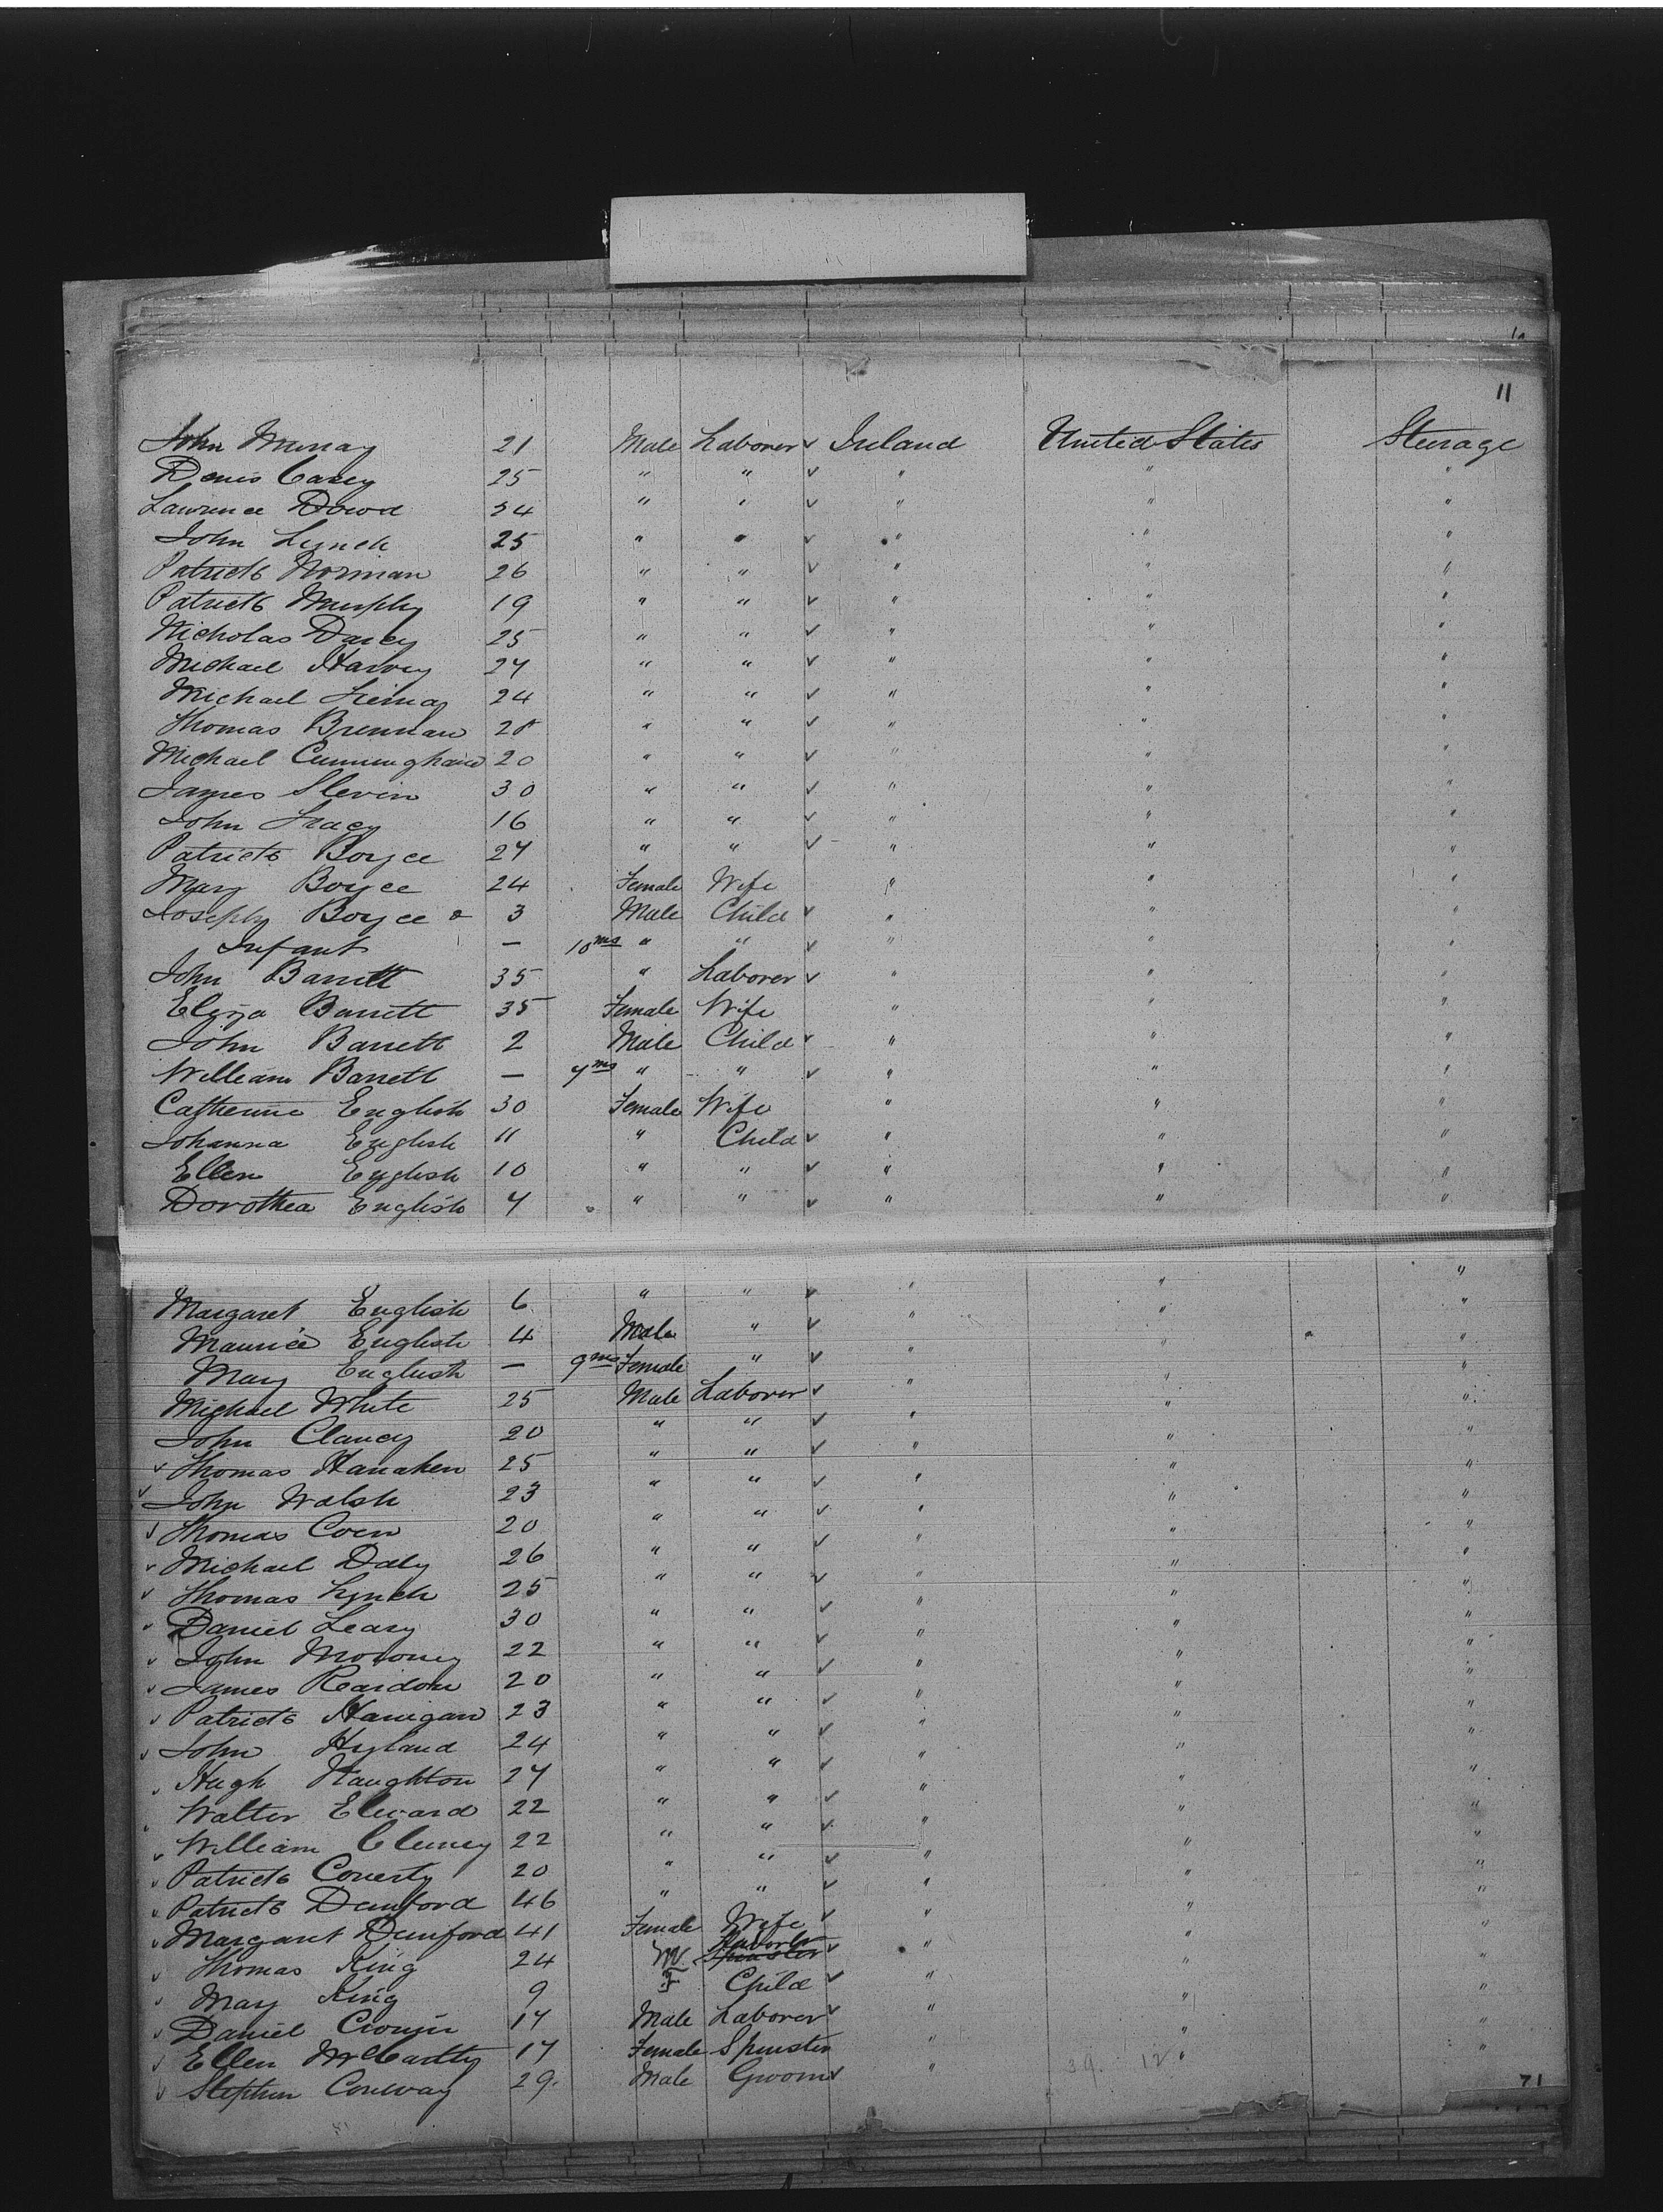 11
John Murray 21 Male Laborer ✓ Ireland United States Steerage
Denis Carey 25 " " ✓ " " "
Lawrence Dowd 24 " " ✓ " " "
John Lynch 25 " " ✓ " " "
Patrick Norman 26 " " ✓ " " "
Patrick Murphy 19 " " ✓ " " "
Nicholas Darcy 25 " " ✓ " " "
Michael Harvey 27 " " ✓ " " "
Michael 24 " " ✓ " " "
Thomas Brennan 28 " " ✓ " " "
Michael Cunningham 20 " " ✓ " " "
James Slevin 30 " " ✓ " " "
John Tracy 16 " " ✓ " " "
Patrick Boyce 27 " " ✓ " " "
Mary Boyce 24 Female Wife " " "
Joseph Boyce & 3 Male Child ✓ " " "
Infant — 10 ms " " ✓ " " "
John Barrett 35 " Laborer ✓ " " "
Eliza Barrett 35 Female Wife " " "
John Barrett 2 Male Child ✓ " " "
William Barrett — 7 ms " " ✓ " " "
Catherine English 30 Female Wife " " "
Johanna English 11 " Child ✓ " " "
Ellen English 10 " " ✓ " " "
Dorothea English 7 " " ✓ " " "
Margaret English 6 " " ✓ " " "
Maurice English 4 Male " ✓ " " "
Mary English — 9 ms Female " ✓ " " "
Michael White 25 Male Laborer ✓ " " "
John Clancy 20 " " ✓ " " "
✓ Thomas Hanahen 25 " " ✓ " " "
✓ John Walsh 23 " " ✓ " " "
✓ Thomas Coen 20 " " ✓ " " "
✓ Michael Daly 26 " " ✓ " " "
✓ Thomas Lynch 25 " " ✓ " " "
✓ Daniel Leary 30 " " ✓ " " "
✓ John Moroney 22 " " ✓ " " "
✓ James Reardon 20 " " ✓ " " "
✓ Patrick Hanigan 23 " " ✓ " " "
✓ John Hyland 24 " " ✓ " " "
✓ Hugh Naughton 27 " " ✓ " " "
✓ Walter Elward 22 " " ✓ " " "
✓ William Cluney 22 " " ✓ " " "
✓ Patrick Conerty 20 " " ✓ " " "
✓ Patrick Dunford 46 " " ✓ " " "
✓ Margaret Dunford 41 Female Wife ✓ " " "
✓ Thomas King 24 M Laborer Spinster ✓ " " "
✓ Mary King 9 F Child ✓ " " "
✓ Daniel Cronin 17 Male Laborer ✓ " " "
✓ Ellen McCarthy 17 Female Spinster " " "
✓ Stephen Conway 29 Male Groom ✓ " 39. 12 " "
71